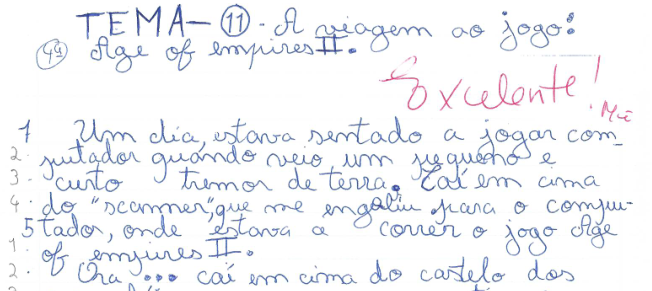 TEMA- 11 - A viagem ao jogo:
4ª Age of empires II.
Excelente!
1 Um dia, estava sentado a jogar com_
2. putador quando veio um pequeno e
3. curto tremor de terra. Caí em cima
4. do "scanner", que me engoliu para o compu-
5 tador, onde estava a correr o jogo Age
1. of empires II.
2. Ora... caí em cima do castelo dos